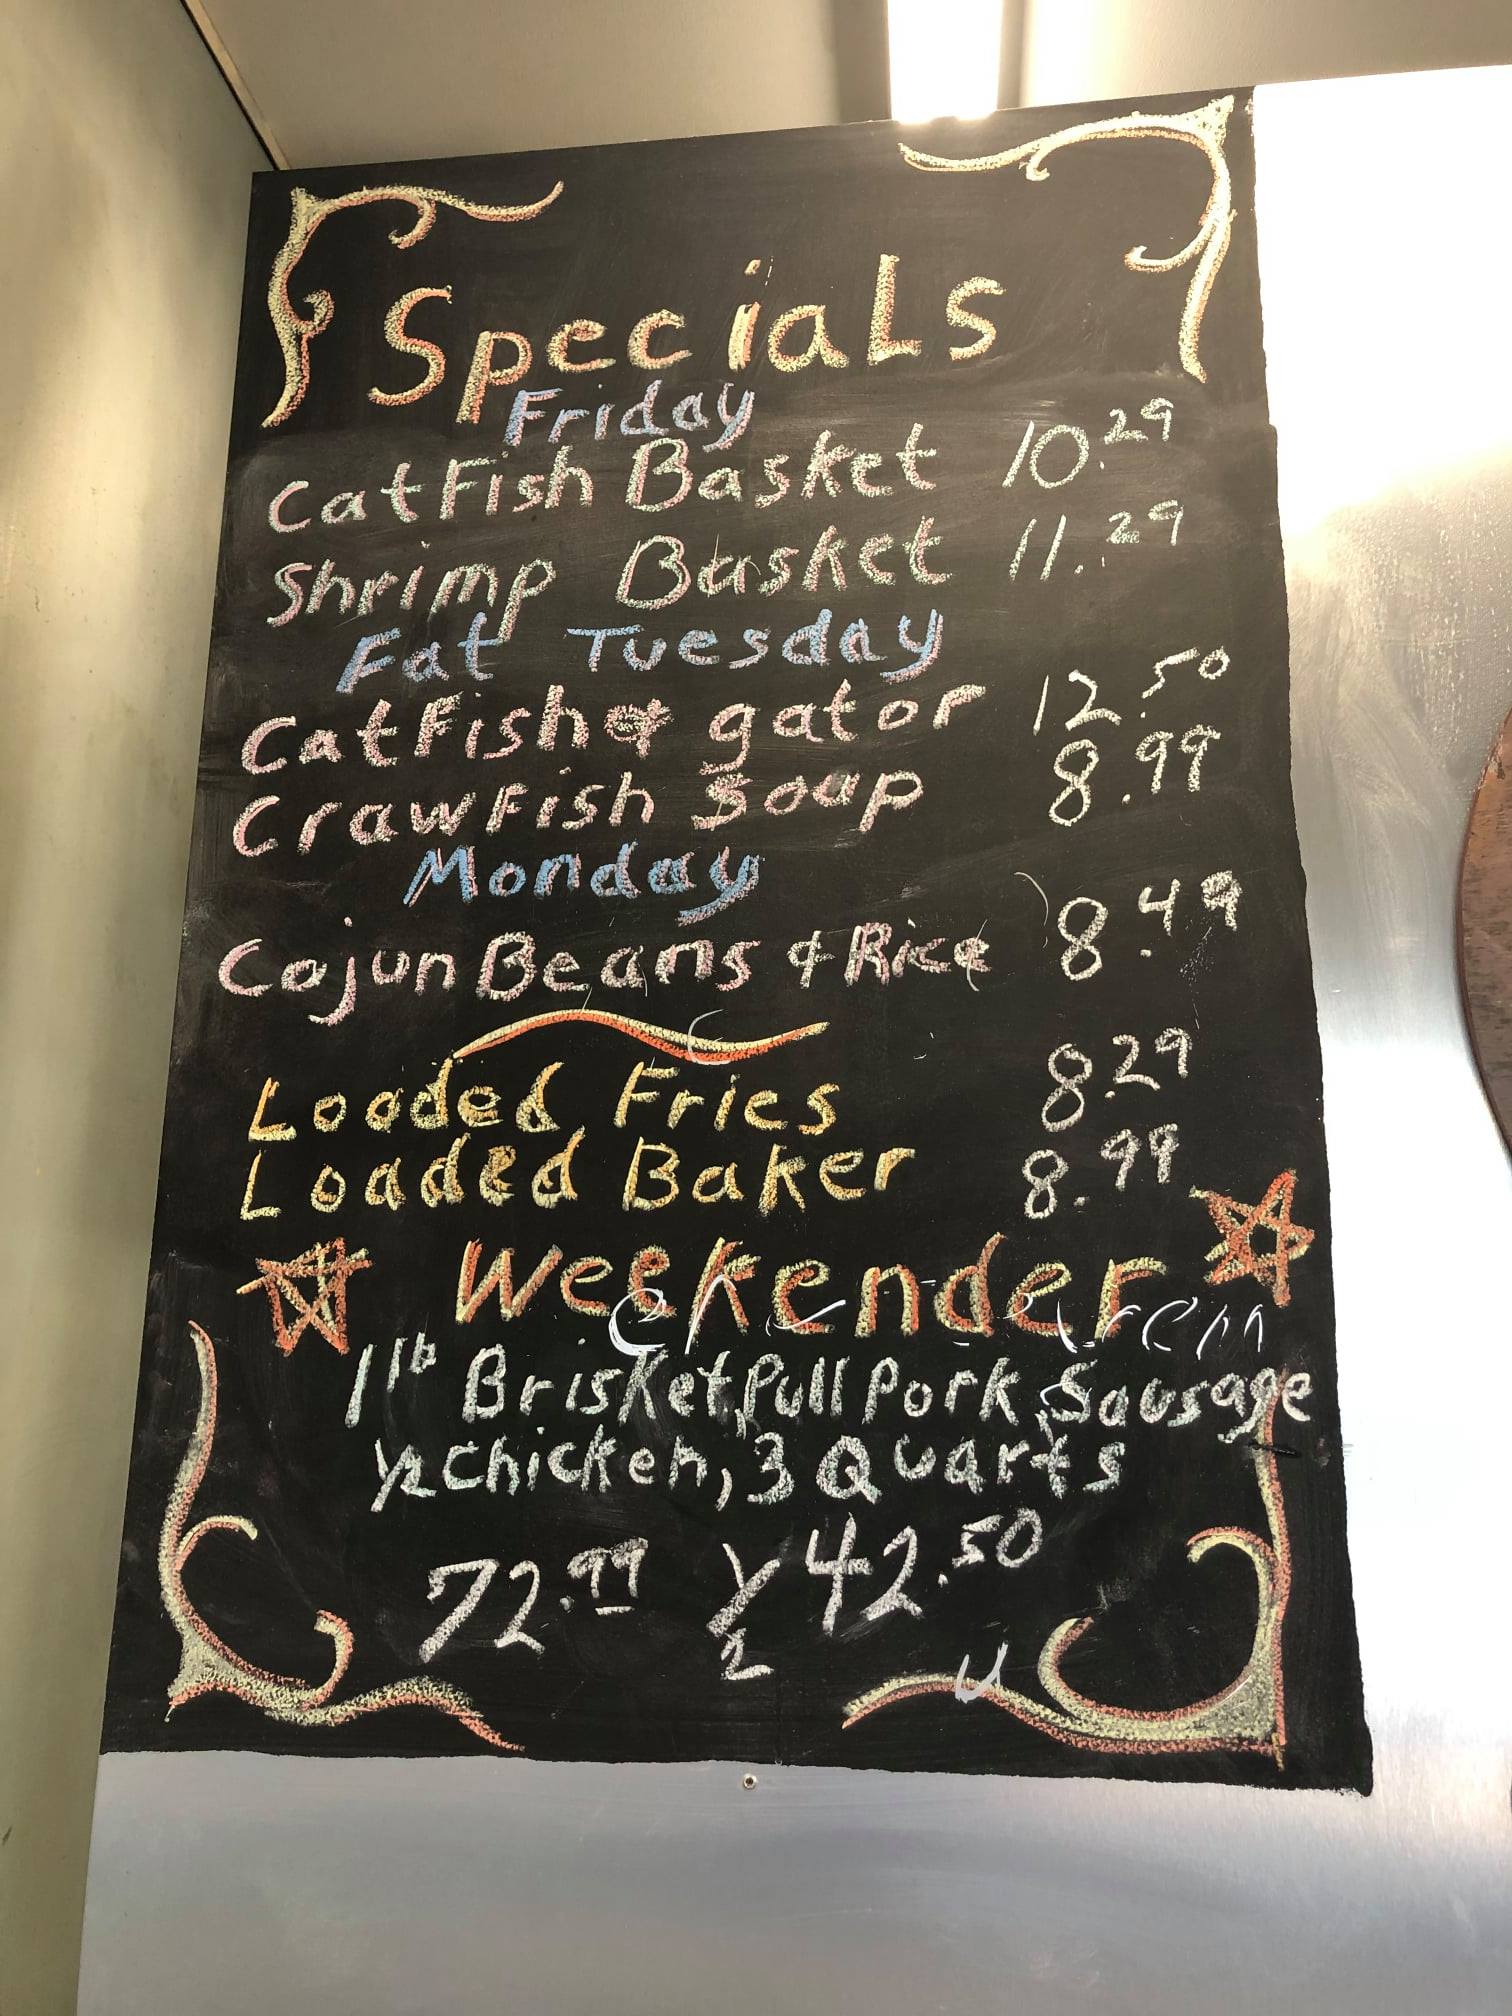 Specials
Friday
Catfish Basket 10.29
Shrimp Basket 11.29
Fat Tuesday
Catfish & gator 12.50
Crawfish Soup 8.99
Monday
Cajun Beans & Rice 8.49
Loaded Fries 8.29
Loaded Baker 8.99
Weekender
1 lb Brisket, Pull Pork, Sausage
1/2 Chicken, 3 Quarts
72.99 1/2 42.50